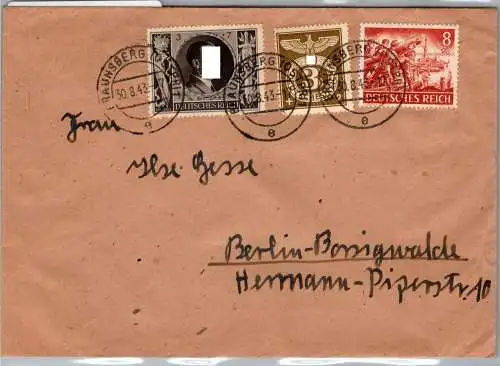 3 + 7
DEUTSCHES REICH
3
8
DEUTSCHES REICH
BRAUNSBERG (OSTPR)
30.8.43
e
BRAUNSBERG (OSTPR)
30.8.43
e
BRAUNSBERG (OSTPR)
30.8.43
e
Frau
Ilse Gesse
Berlin-Borsigwalde
Hermann-Piperstr 10